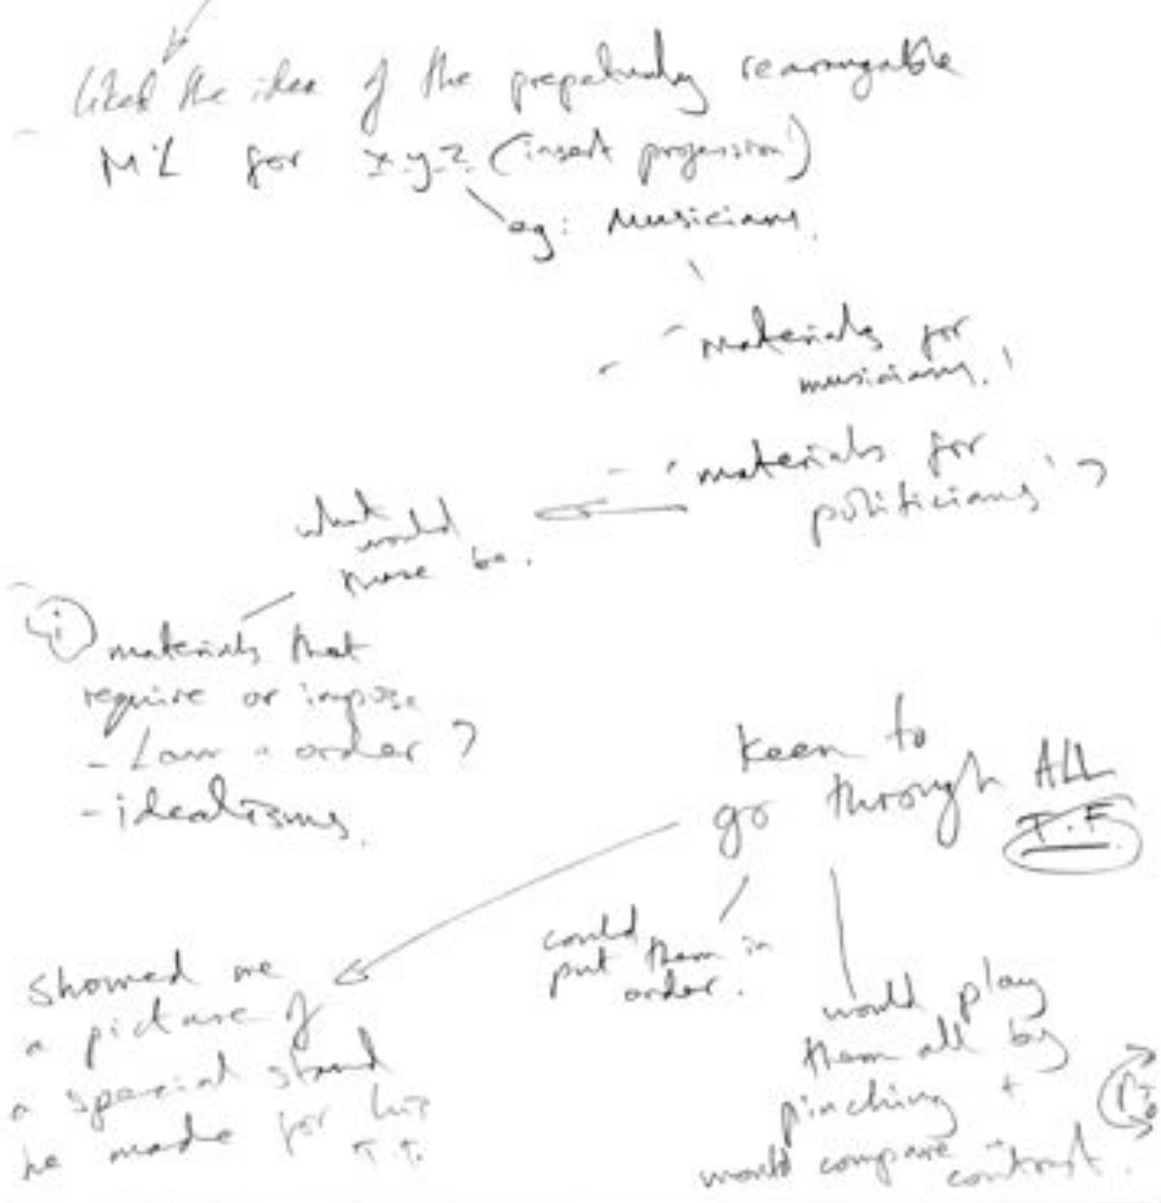 - liked the idea of the perpetually rearrangable
ML for x.y.z. (insert profession)
eg: musicians.
- 'materials for
musicians.'
- 'materials for
politicians'?
what
would
these be.
(i) materials that
require or impose
- Law + order?
- idealisms.
keen to
go through ALL
T.F
could
put them in
order.
would play
them all by
pinching +
would compare +
contrast.
showed me
a picture of
a special stand
he made for his